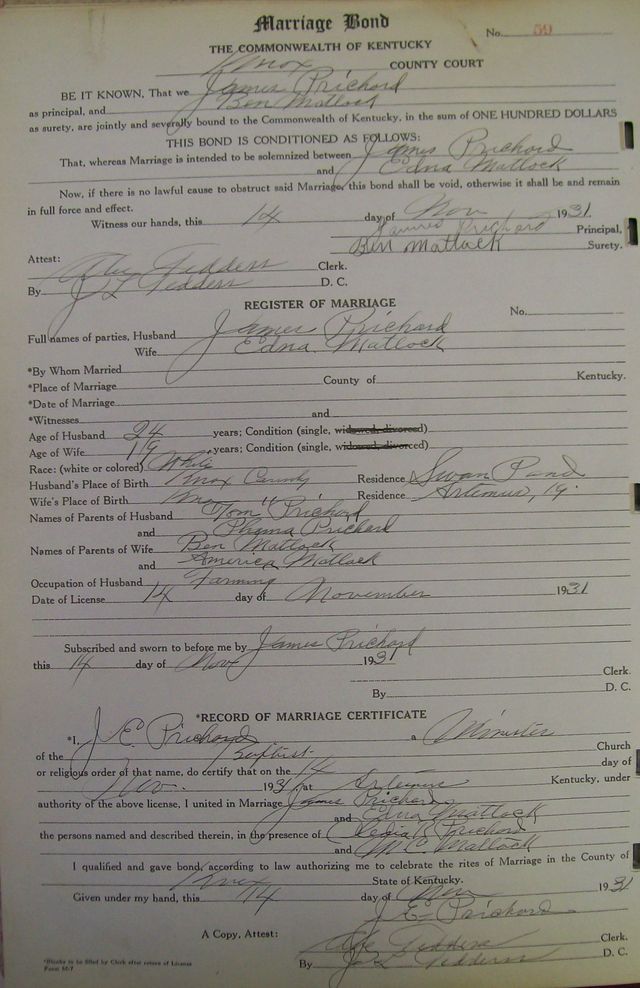 Marriage Bond
No. 59
THE COMMONWEALTH OF KENTUCKY
Knox COUNTY COURT
BE IT KNOWN, That we James Prichard
as principal, and Ben Matlock
as surety, are jointly and severally bound to the Commonwealth of Kentucky, in the sum of ONE HUNDRED DOLLARS
THIS BOND IS CONDITIONED AS FOLLOWS:
That, whereas Marriage is intended to be solemnized between James Prichard
and Edna Matlock
Now, if there is no lawful cause to obstruct said Marriage, this bond shall be void, otherwise it shall be and remain
in full force and effect.
Witness our hands, this 14 day of Nov 1931.
Prichard Principal,
Ben Matlock Surety.
Attest:
Tedders Clerk.
By J L Tedders D. C.
REGISTER OF MARRIAGE
No.
Full names of parties, Husband James Prichard
Wife Edna Matlock
*By Whom Married
*Place of Marriage County of Kentucky.
*Date of Marriage
*Witnesses and
Age of Husband 24 years; Condition (single, widowed, divorced)
Age of Wife 19 years; Condition (single, widowed, divorced)
Race: (white or colored) White
Husband's Place of Birth Knox County Residence Swan Pond
Wife's Place of Birth Knox " Residence Artemus, Ky.
Names of Parents of Husband Tom Prichard
and Prichard
Names of Parents of Wife Ben Matlock
and America Matlock
Occupation of Husband Farming
Date of License 14 day of November 1931
Subscribed and sworn to before me by James Prichard
this 14 day of Nov 1931
Clerk.
By D. C.
*RECORD OF MARRIAGE CERTIFICATE
*I, J. E. Prichard a Minister
of the Baptist Church
or religious order of that name, do certify that on the 14 day of
Nov. 1931 at Artemus Kentucky, under
authority of the above license, I united in Marriage James Prichard
and Edna Matlock
the persons named and described therein, in the presence of Prichard
and Matlock
I qualified and gave bond, according to law authorizing me to celebrate the rites of Marriage in the County of
Knox State of Kentucky.
Given under my hand, this 14 day of Nov 1931
J. E. Prichard
A Copy, Attest: Tedders Clerk.
By J L Tedders D. C.
*Blanks to be filled by Clerk after return of License
Form M-7